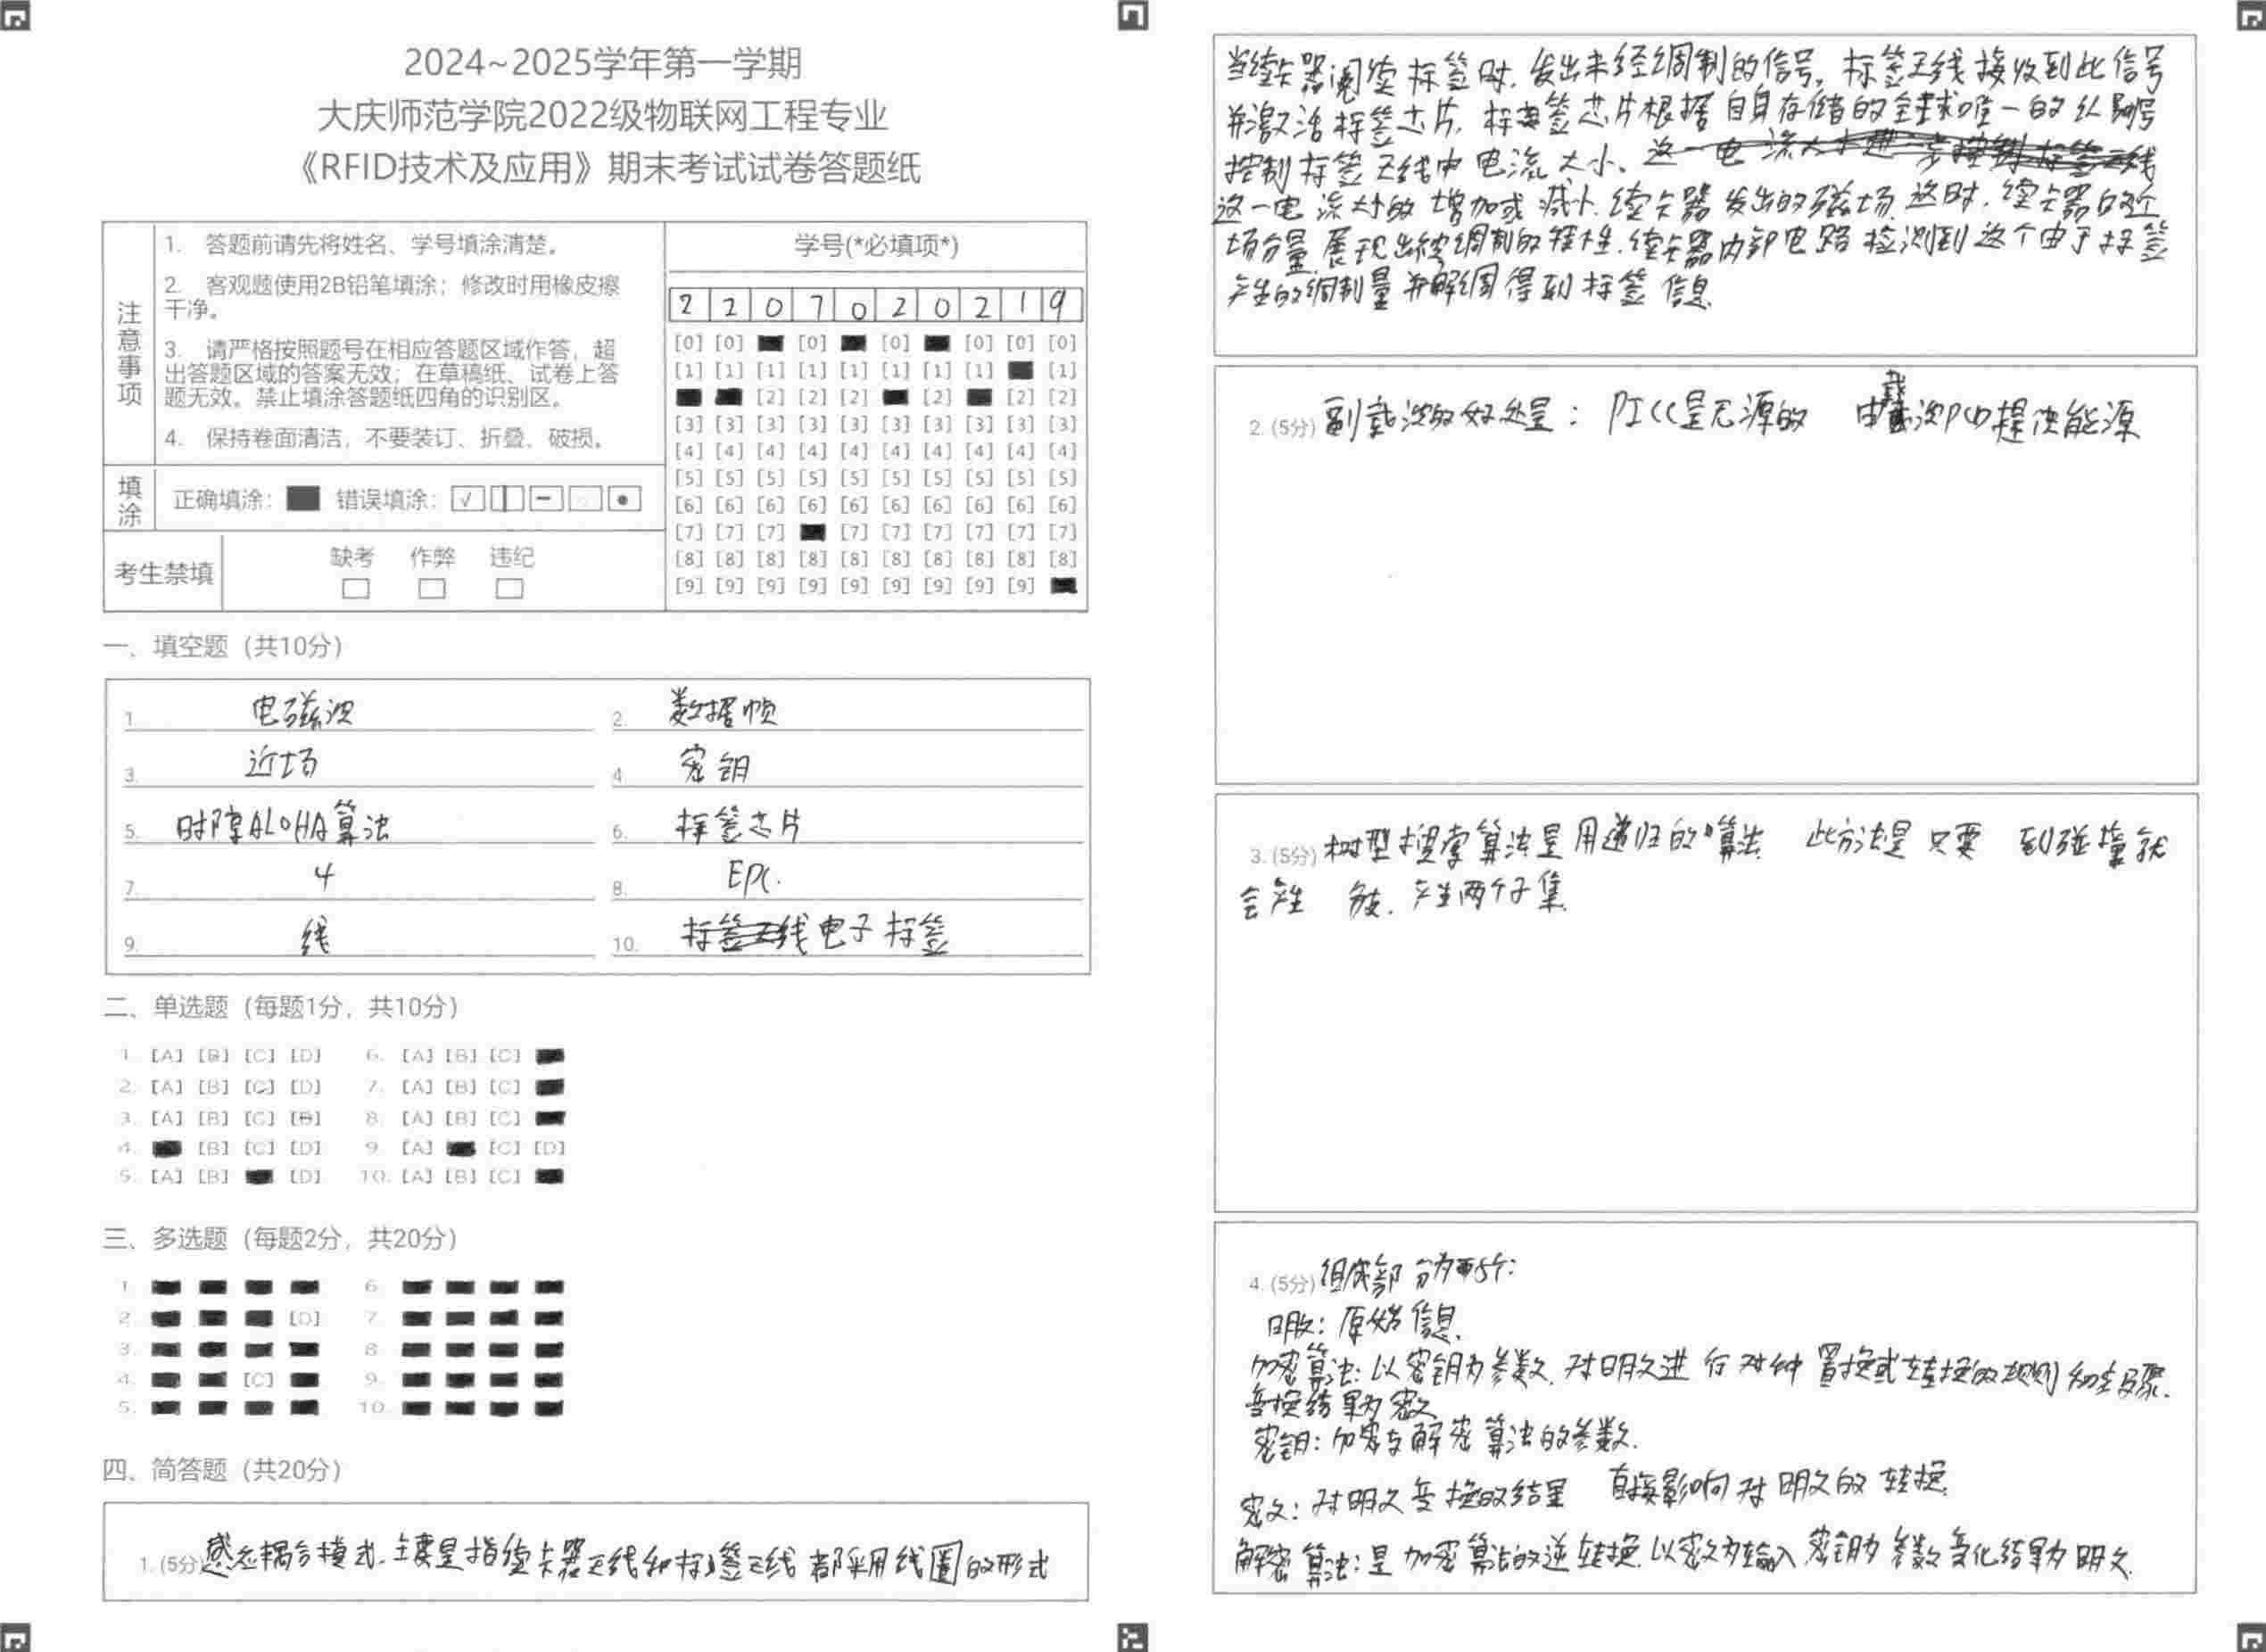 2024~2025学年第一学期
大庆师范学院2022级物联网工程专业
《RFID技术及应用》期末考试试卷答题纸
注意事项
1. 答题前请先将姓名、学号填涂清楚。
2. 客观题使用2B铅笔填涂；修改时用橡皮擦
干净。
3. 请严格按照题号在相应答题区域作答，超
出答题区域的答案无效；在草稿纸、试卷上答
题无效。禁止填涂答题纸四角的识别区。
4. 保持卷面清洁，不要装订、折叠、破损。
填涂
正确填涂： 错误填涂：
考生禁填
缺考 作弊 违纪
学号(*必填项*)
2 2 0 7 0 2 0 2 1 9
[0] [0] [0] [0] [0] [0] [0]
[1] [1] [1] [1] [1] [1] [1] [1] [1]
[2] [2] [2] [2] [2] [2]
[3] [3] [3] [3] [3] [3] [3] [3] [3] [3]
[4] [4] [4] [4] [4] [4] [4] [4] [4] [4]
[5] [5] [5] [5] [5] [5] [5] [5] [5] [5]
[6] [6] [6] [6] [6] [6] [6] [6] [6] [6]
[7] [7] [7] [7] [7] [7] [7] [7] [7]
[8] [8] [8] [8] [8] [8] [8] [8] [8] [8]
[9] [9] [9] [9] [9] [9] [9] [9] [9]
一、填空题（共10分）
1. 电磁波
2. 数据帧
3. 近场
4. 密钥
5. 时隙ALOHA算法
6. 标签芯片
7. 4
8. EPC.
9. 线
10. 电子标签
二、单选题（每题1分，共10分）
1. [A] [B] [C] [D] 6. [A] [B] [C]
2. [A] [B] [C] [D] 7. [A] [B] [C]
3. [A] [B] [C] [D] 8. [A] [B] [C]
4. [B] [C] [D] 9. [A] [C] [D]
5. [A] [B] [D] 10. [A] [B] [C]
三、多选题（每题2分，共20分）
1. 6.
2. [D] 7.
3. 8.
4. [C] 9.
5. 10.
四、简答题（共20分）
1. (5分) 感应耦合模式.主要是指读卡器天线和标签天线都采用线圈的形式
当读卡器阅读标签时.发出未经调制的信号。标签天线接收到此信号
并激活标签芯片.标签芯片根据自身存储的全球唯一的
控制标签天线中电流大小、
这一电流大小的增加或减小读卡器发出的磁场.这时.读卡器的近
场分量展现出被调制的特性.读卡器内部电路检测到这个由于标签
产生的调制量并解调得到标签信息
2. (5分) 副载波的好处是： PICC是无源的 由载波PCD提供能源
3. (5分) 树型搜索算法是用递归的算法 此方法是只要 到碰撞就
会产生 分支.产生两个子集
4. (5分) 组成部分为5个：
明文：原始信息.
加密算法：以密钥为参数.对明文进行 置换或转换的规则和步骤.
变换结果为密文
密钥：加密与解密算法的参数.
密文：对明文变换的结果 直接影响对明文的转换.
解密算法：是加密算法的逆转换.以密文为输入 密钥为参数变化结果为明文.